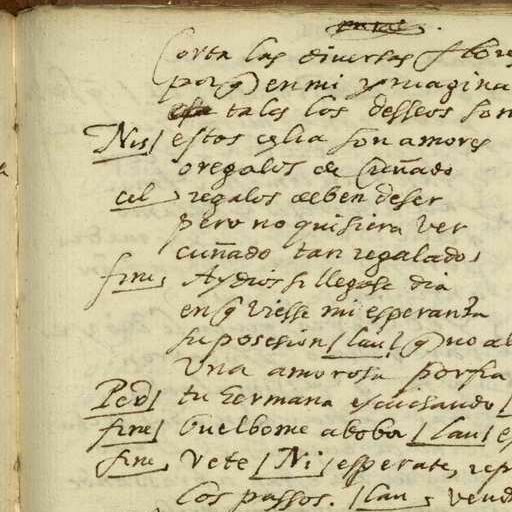 Corta las diversas flores
porq̃ en mi ymagina
tales los desseos son
Nis/ estos celia son amores
o regalos de cuñado
cel regalos deben de ser
pero no quisiera ver
cuñado tan regalado
fine, Ay dios si llegase dia
en q̃ viesse mi esperanza
su posesion /lau/ q̃ no al
Una amorosa porfia
Ped/ tu hermana escuchando /
fine/ buelbome a boba /lau/ es
fine, vete /Ni/ esperate, rep
los passos. /lau, vend